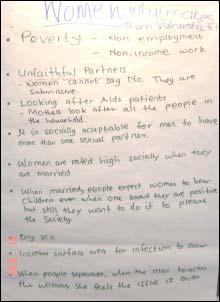 Women, What makes
Them Vulnerable?
• Poverty - Non employment
- Non income work
• Unfaithful Partners
- Women cannot say No. They are
submissive.
• Looking after Aids patients
- Mothers took after all the people in
the household.
• It is socially acceptable for men to have
more than one sexual partner.
• Women are rated high socially when they
are married
• When married, people expect women to bear
children even when one knows they are positive
but still they want to do it to please
the Society.
• Dry sex
• Increase surface area for infection to occur
• When people separate, when the man touches
the woman she feels the issue is over